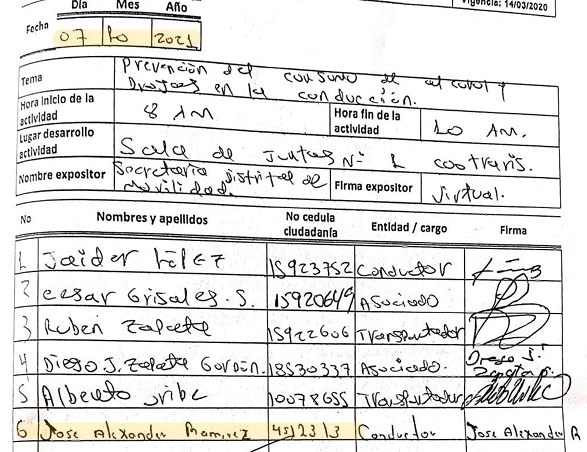 Vigencia: 14/03/2020
Dia Mes Año
Fecha 07 10 2021
Tema Prevención del consumo de alcohol y
Drogas en la conducción.
Hora Inicio de la actividad 8 AM Hora fin de la actividad 10 AM.
Lugar desarrollo actividad Sala de Juntas Nº 1 cootraris.
Nombre expositor Secretaria distrital de movilidad. Firma expositor virtual.
No Nombres y apellidos No cedula ciudadanía Entidad / cargo Firma
1 Jaider 15923752 Conductor
2 cesar Grisales. S. 15920649 Asociado
3 Ruben Zapata 15922606 Transportador
4 Diego J. Zapata 18530337 Asociado. Diego J. Zapata
5 Alberto Uribe 10078655 Transportador
6 Jose Alexander Ramirez 4512313 Conductor Jose Alexander R